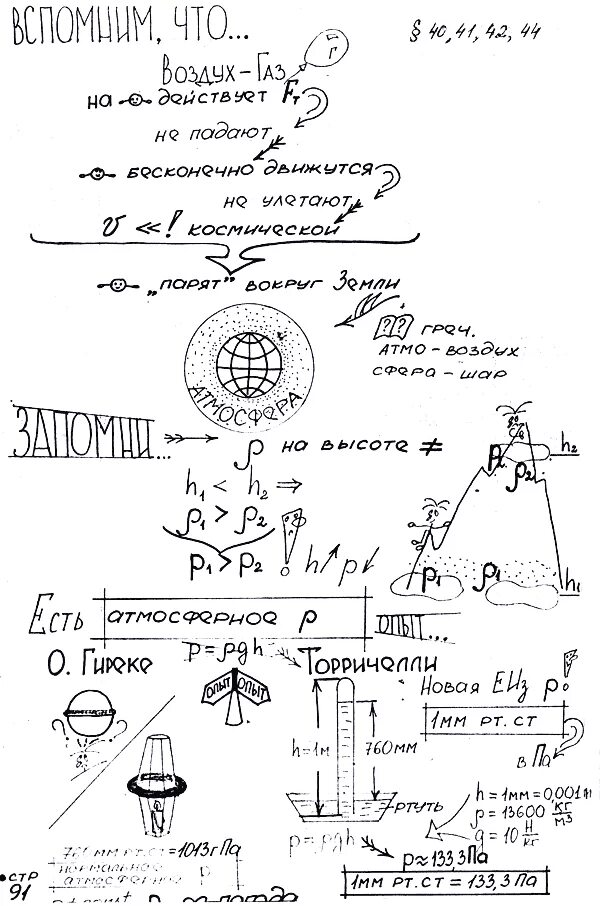 ВСПОМНИМ, ЧТО...
§ 40, 41, 42, 44
Г
ВОЗДУХ – ГАЗ
НА ДЕЙСТВУЕТ Fт
НЕ ПАДАЮТ
БЕСКОНЕЧНО ДВИЖУТСЯ
НЕ УЛЕТАЮТ
v ≪ ! КОСМИЧЕСКОЙ
„ПАРЯТ" ВОКРУГ ЗЕМЛИ
?? ГРЕЧ.
АТМО – ВОЗДУХ
СФЕРА – ШАР
АТМОСФЕРА
ЗАПОМНИ...
ρ НА ВЫСОТЕ ≠
h₁ < h₂ ⇒
ρ₁ > ρ₂
p₁ > p₂ ! h↗ p↙
h₂
ρ₂
p₁ ρ₁ h₁
ЕСТЬ АТМОСФЕРНОЕ p
ОПЫТ...
p = ρgh
О. ГИРЕКЕ
ТОРРИЧЕЛЛИ
ОПЫТ ОПЫТ
НОВАЯ ЕИз p!
1ММ РТ. СТ
В Па
h = 1м
760ММ
РТУТЬ
p = ρgh
h = 1мм = 0,001м
ρ = 13600 кг/м3
g = 10 Н/кг
p ≈ 133,3 Па
1ММ РТ. СТ = 133,3 Па
760 ММ РТ.СТ = 1013гПа
НОРМАЛЬНОЕ
АТМОСФЕРНОЕ p
• СТР
91